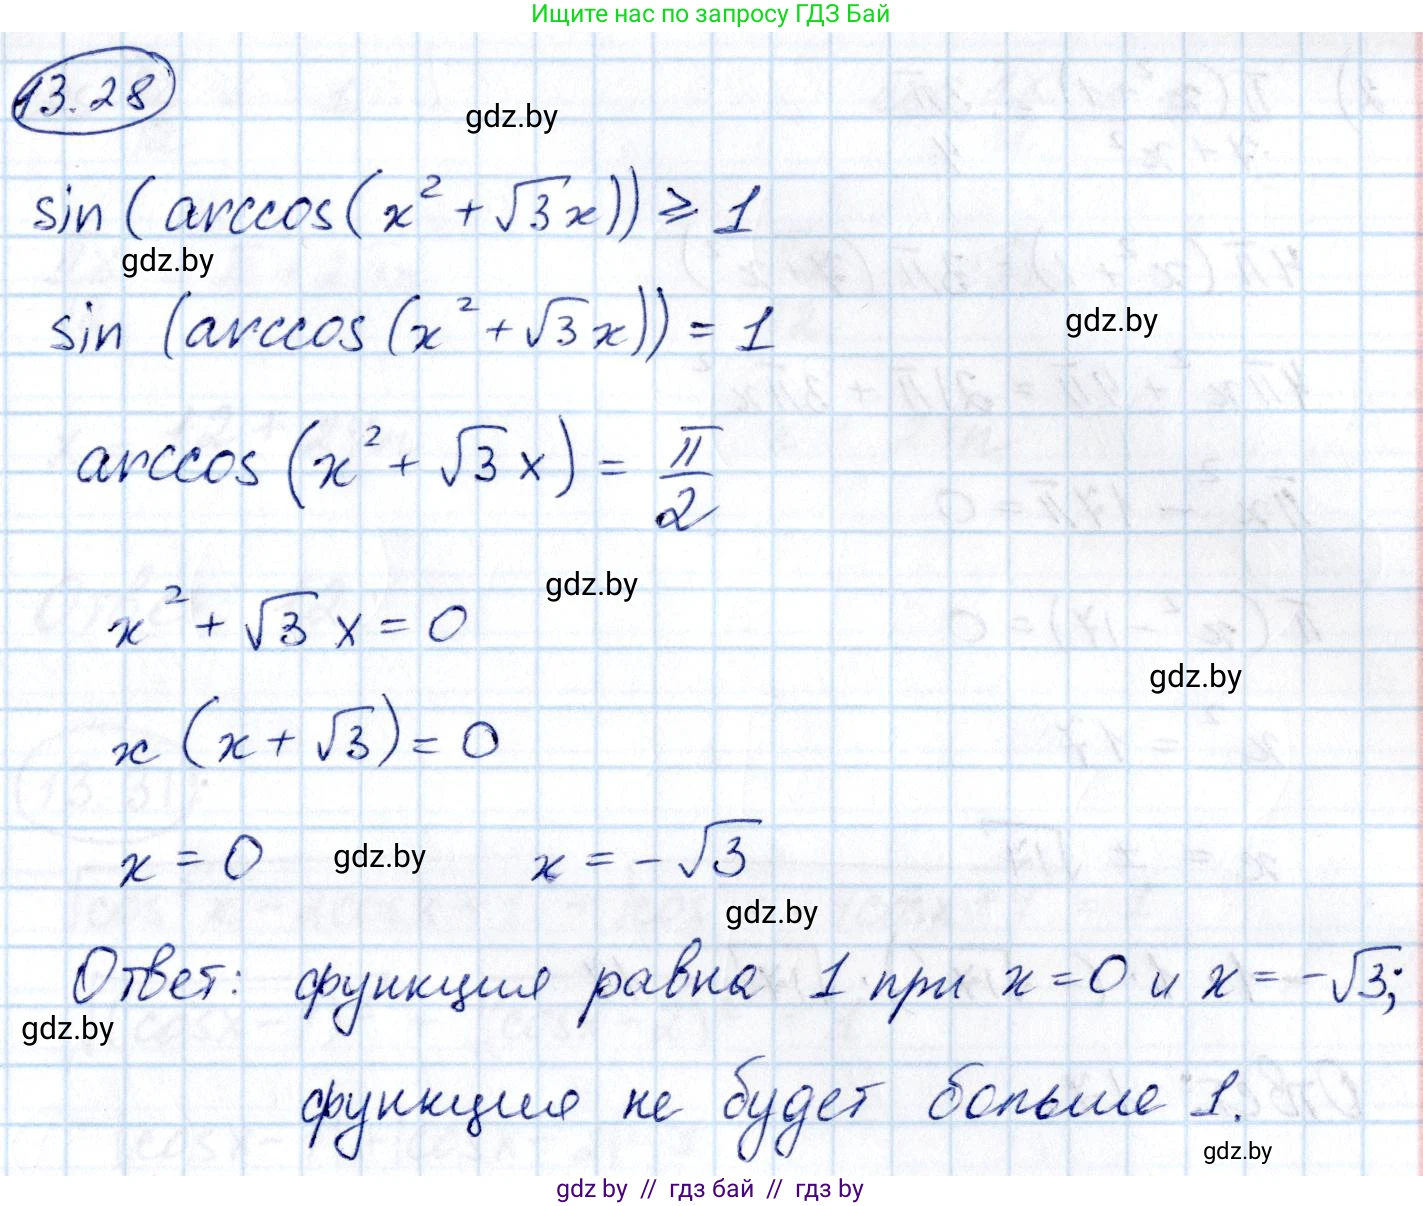 Ищите нас по запросу ГДЗ Бай
13.28
gdz.by
sin(arccos(x² + √3x)) ⩾ 1
gdz.by
sin (arccos(x² + √3x)) = 1
gdz.by
arccos (x² + √3 x) = π/2
gdz.by
x² + √3 x = 0
gdz.by
x (x + √3) = 0
x = 0 gdz.by x = - √3
gdz.by
Ответ: функция равна 1 при x = 0 и x = - √3;
gdz.by
функция не будет больше 1.
gdz.by
gdz by // гдз бай // гдз by